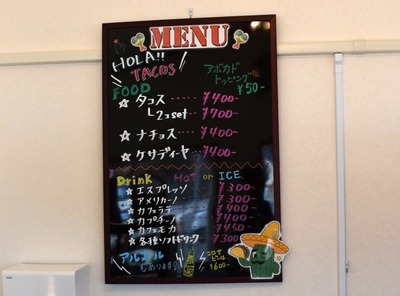 MENU
HOLA!!
TACOS
アボカド
トッピング
¥50-
FOOD
☆ タコス ---- ¥400-
└ 2コset ---- ¥700-
☆ ナチョス ---- ¥400-
☆ ケサディーヤ -- ¥400-
Drink HOT or ICE
★ エスプレッソ ¥300-
★ アメリカーノ ¥300-
★ カフェラテ ¥400-
★ カプチーノ ¥400-
★ カフェモカ ¥450-
★ 各種ソフトドリンク ¥300-
アルコール
もあります
コロナ
ビール
¥600-